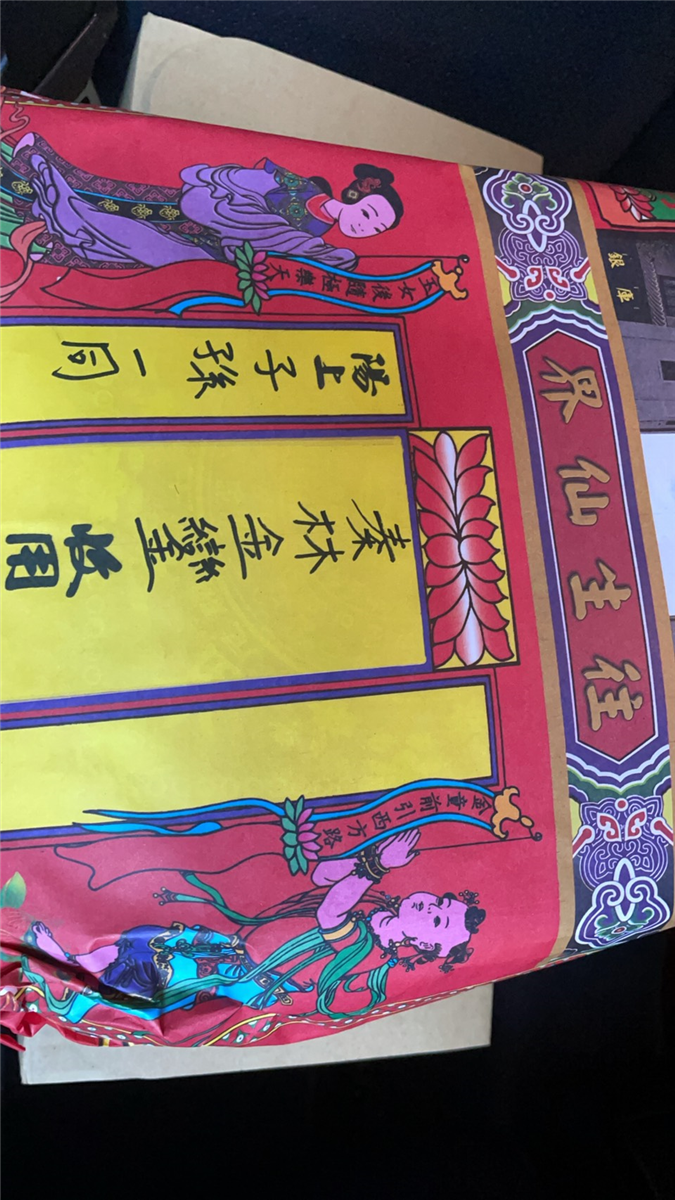 銀庫
往生仙界
金童前引西方路
秦林金鑾收用
陽上子孫一同
玉女後隨極樂天